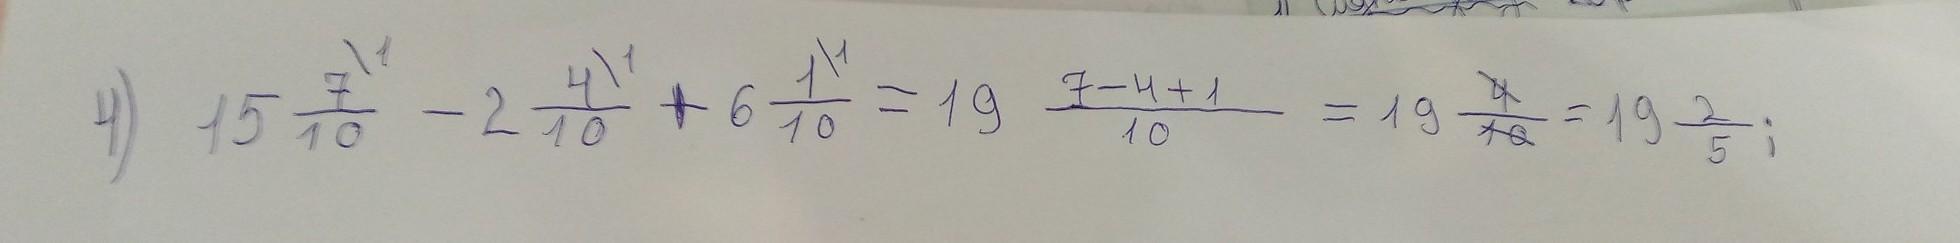 4) 15 7\1/10 - 2 4\1/10 + 6 1\1/10 = 19 7-4+1/10 = 19 4/10 = 19 2/5;